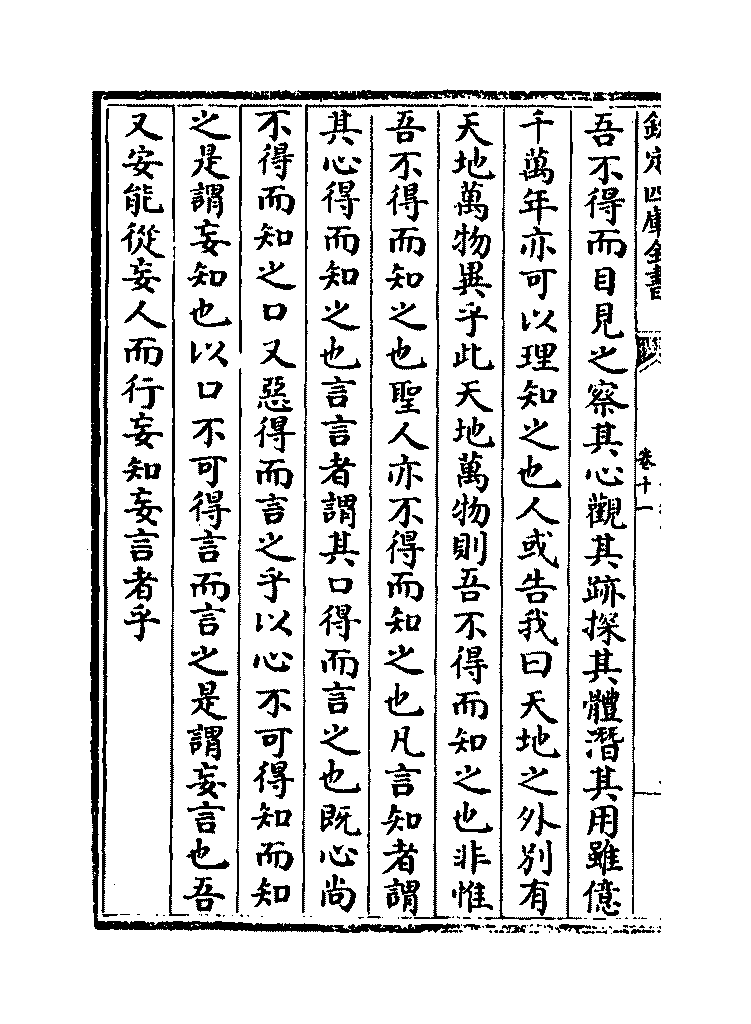 欽定四庫全書
卷十一
吾不得而目見之察其心觀其跡探其體潛其用雖億
千萬年亦可以理知之也人或告我曰天地之外别有
天地萬物異乎此天地萬物則吾不得而知之也非惟
吾不得而知之也聖人亦不得而知之也凡言知者謂
其心得而知之也言言者謂其口得而言之也既心尚
不得而知之口又惡得而言之乎以心不可得知而知
之是謂妄知也以口不可得言而言之是謂妄言也吾
又安能從妄人而行妄知妄言者乎